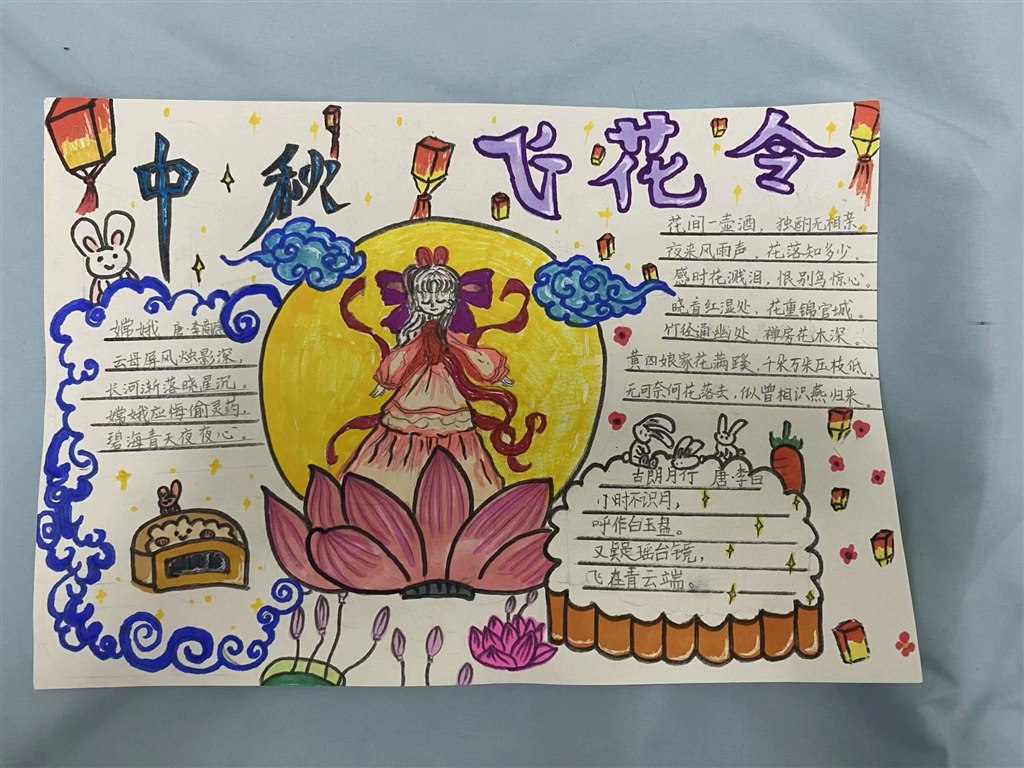 中秋 飞花令
花间一壶酒，独酌无相亲。
夜来风雨声，花落知多少。
感时花溅泪，恨别鸟惊心。
晓看红湿处，花重锦官城。
竹径通幽处，禅房花木深。
黄四娘家花满蹊，千朵万朵压枝低。
无可奈何花落去，似曾相识燕归来。
嫦娥 唐·李商隐
云母屏风烛影深，
长河渐落晓星沉。
嫦娥应悔偷灵药，
碧海青天夜夜心。
古朗月行 唐·李白
小时不识月，
呼作白玉盘。
又疑瑶台镜，
飞在青云端。